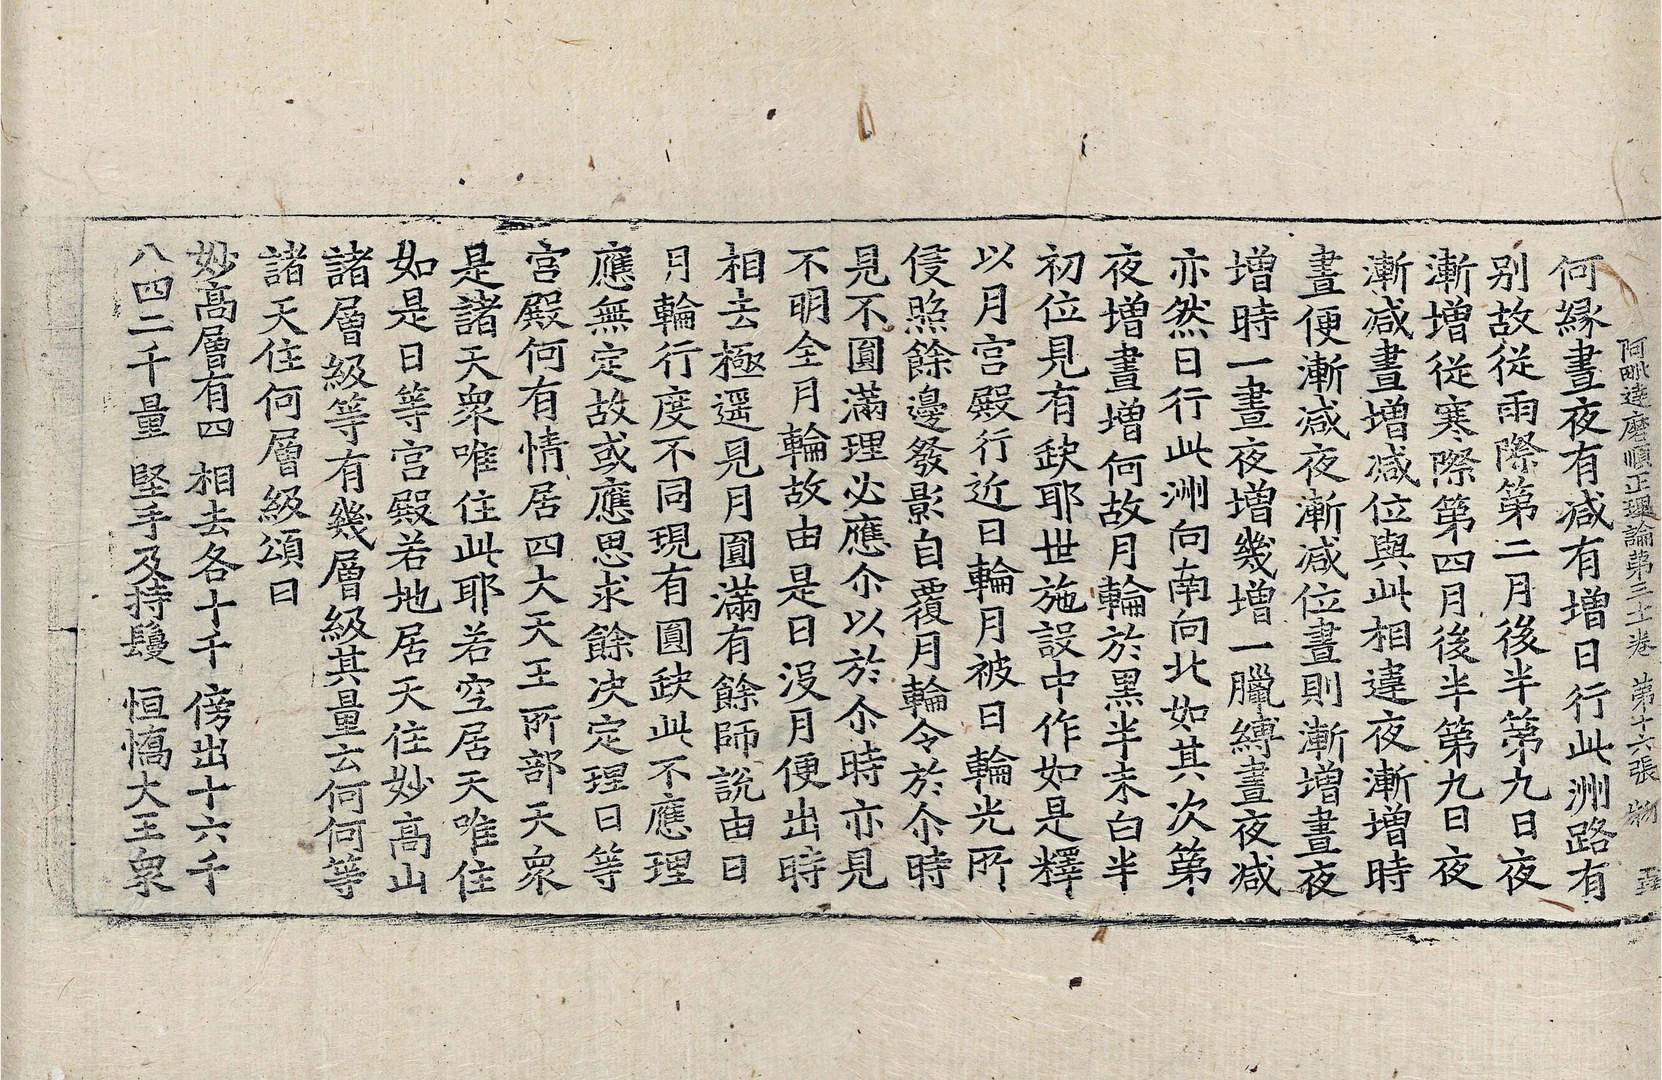 阿毗達磨順正理論第三十一卷 第十六張 物
何緣晝夜有減有增日行此洲路有
別故從雨際第二月後半第九日夜
漸增從寒際第四月後半第九日夜
漸減晝增減位與此相違夜漸增時
晝便漸減夜漸減位晝則漸增晝夜
增時一晝夜增幾增一臘縛晝夜減
亦然日行此洲向南向北如其次第
夜增晝增何故月輪於黑半末白半
初位見有缺耶世施設中作如是釋
以月宮殿行近日輪月被日輪光所
侵照餘邊發影自覆月輪令於尒時
見不圓滿理必應尒以於尒時亦見
不明全月輪故由是日沒月便出時
相去極遥見月圓滿有餘師說由日
月輪行度不同現有圓缺此不應理
應無定故或應思求餘決定理日等
宮殿何有情居四大天王所部天衆
是諸天衆唯住此耶若空居天唯住
如是日等宮殿若地居天住妙高山
諸層級等有幾層級其量云何何等
諸天住何層級頌曰
妙高層有四 相去各十千 傍出十六千
八四二千量 堅手及持鬘 恒憍大王衆